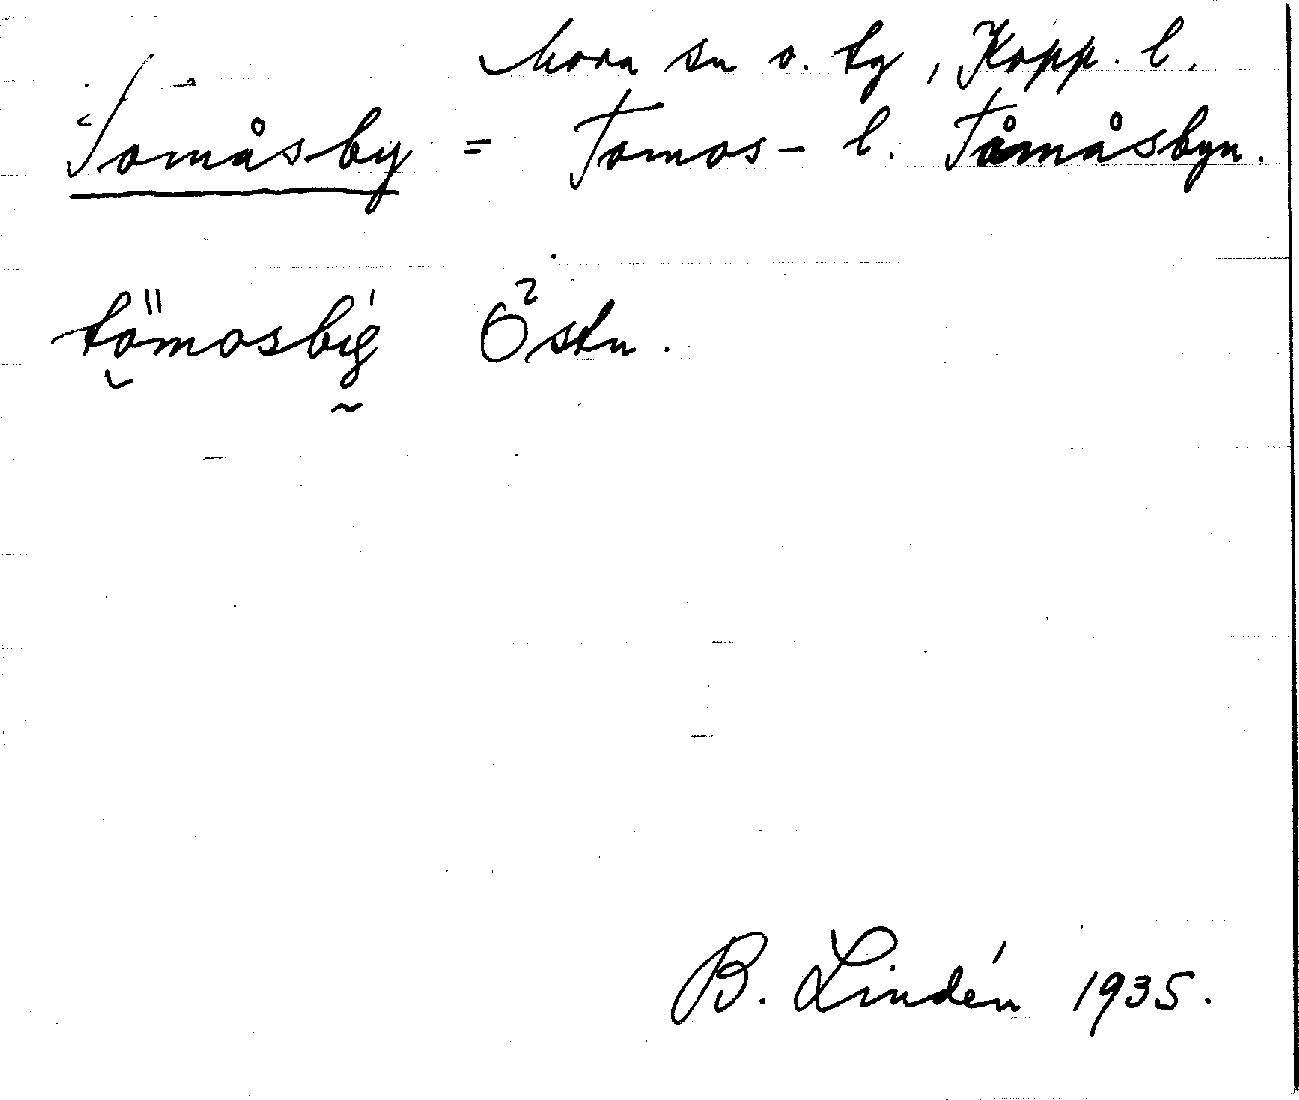 Mora sn o. tg, Kopp. l.
Tomåsby = Tomos- l. Tåmåsbyn.
tömosbig Östn.
B. Lindén 1935.